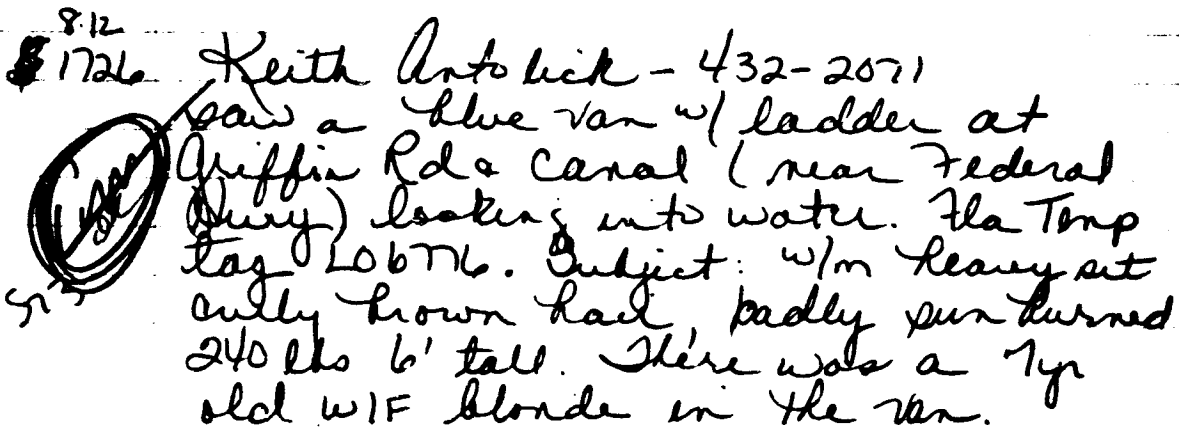 8.12
1726 Keith Antolick - 432-2071
Saw a blue van w/ ladder at
Griffin Rd & Canal (near Federal
Hwy) looking into water. Fla Temp
tag L06776. Subject: w/m heavy set
curly brown hair, badly sun burned
240 lbs 6' tall. There was a 7yr
old W/F blonde in the van.